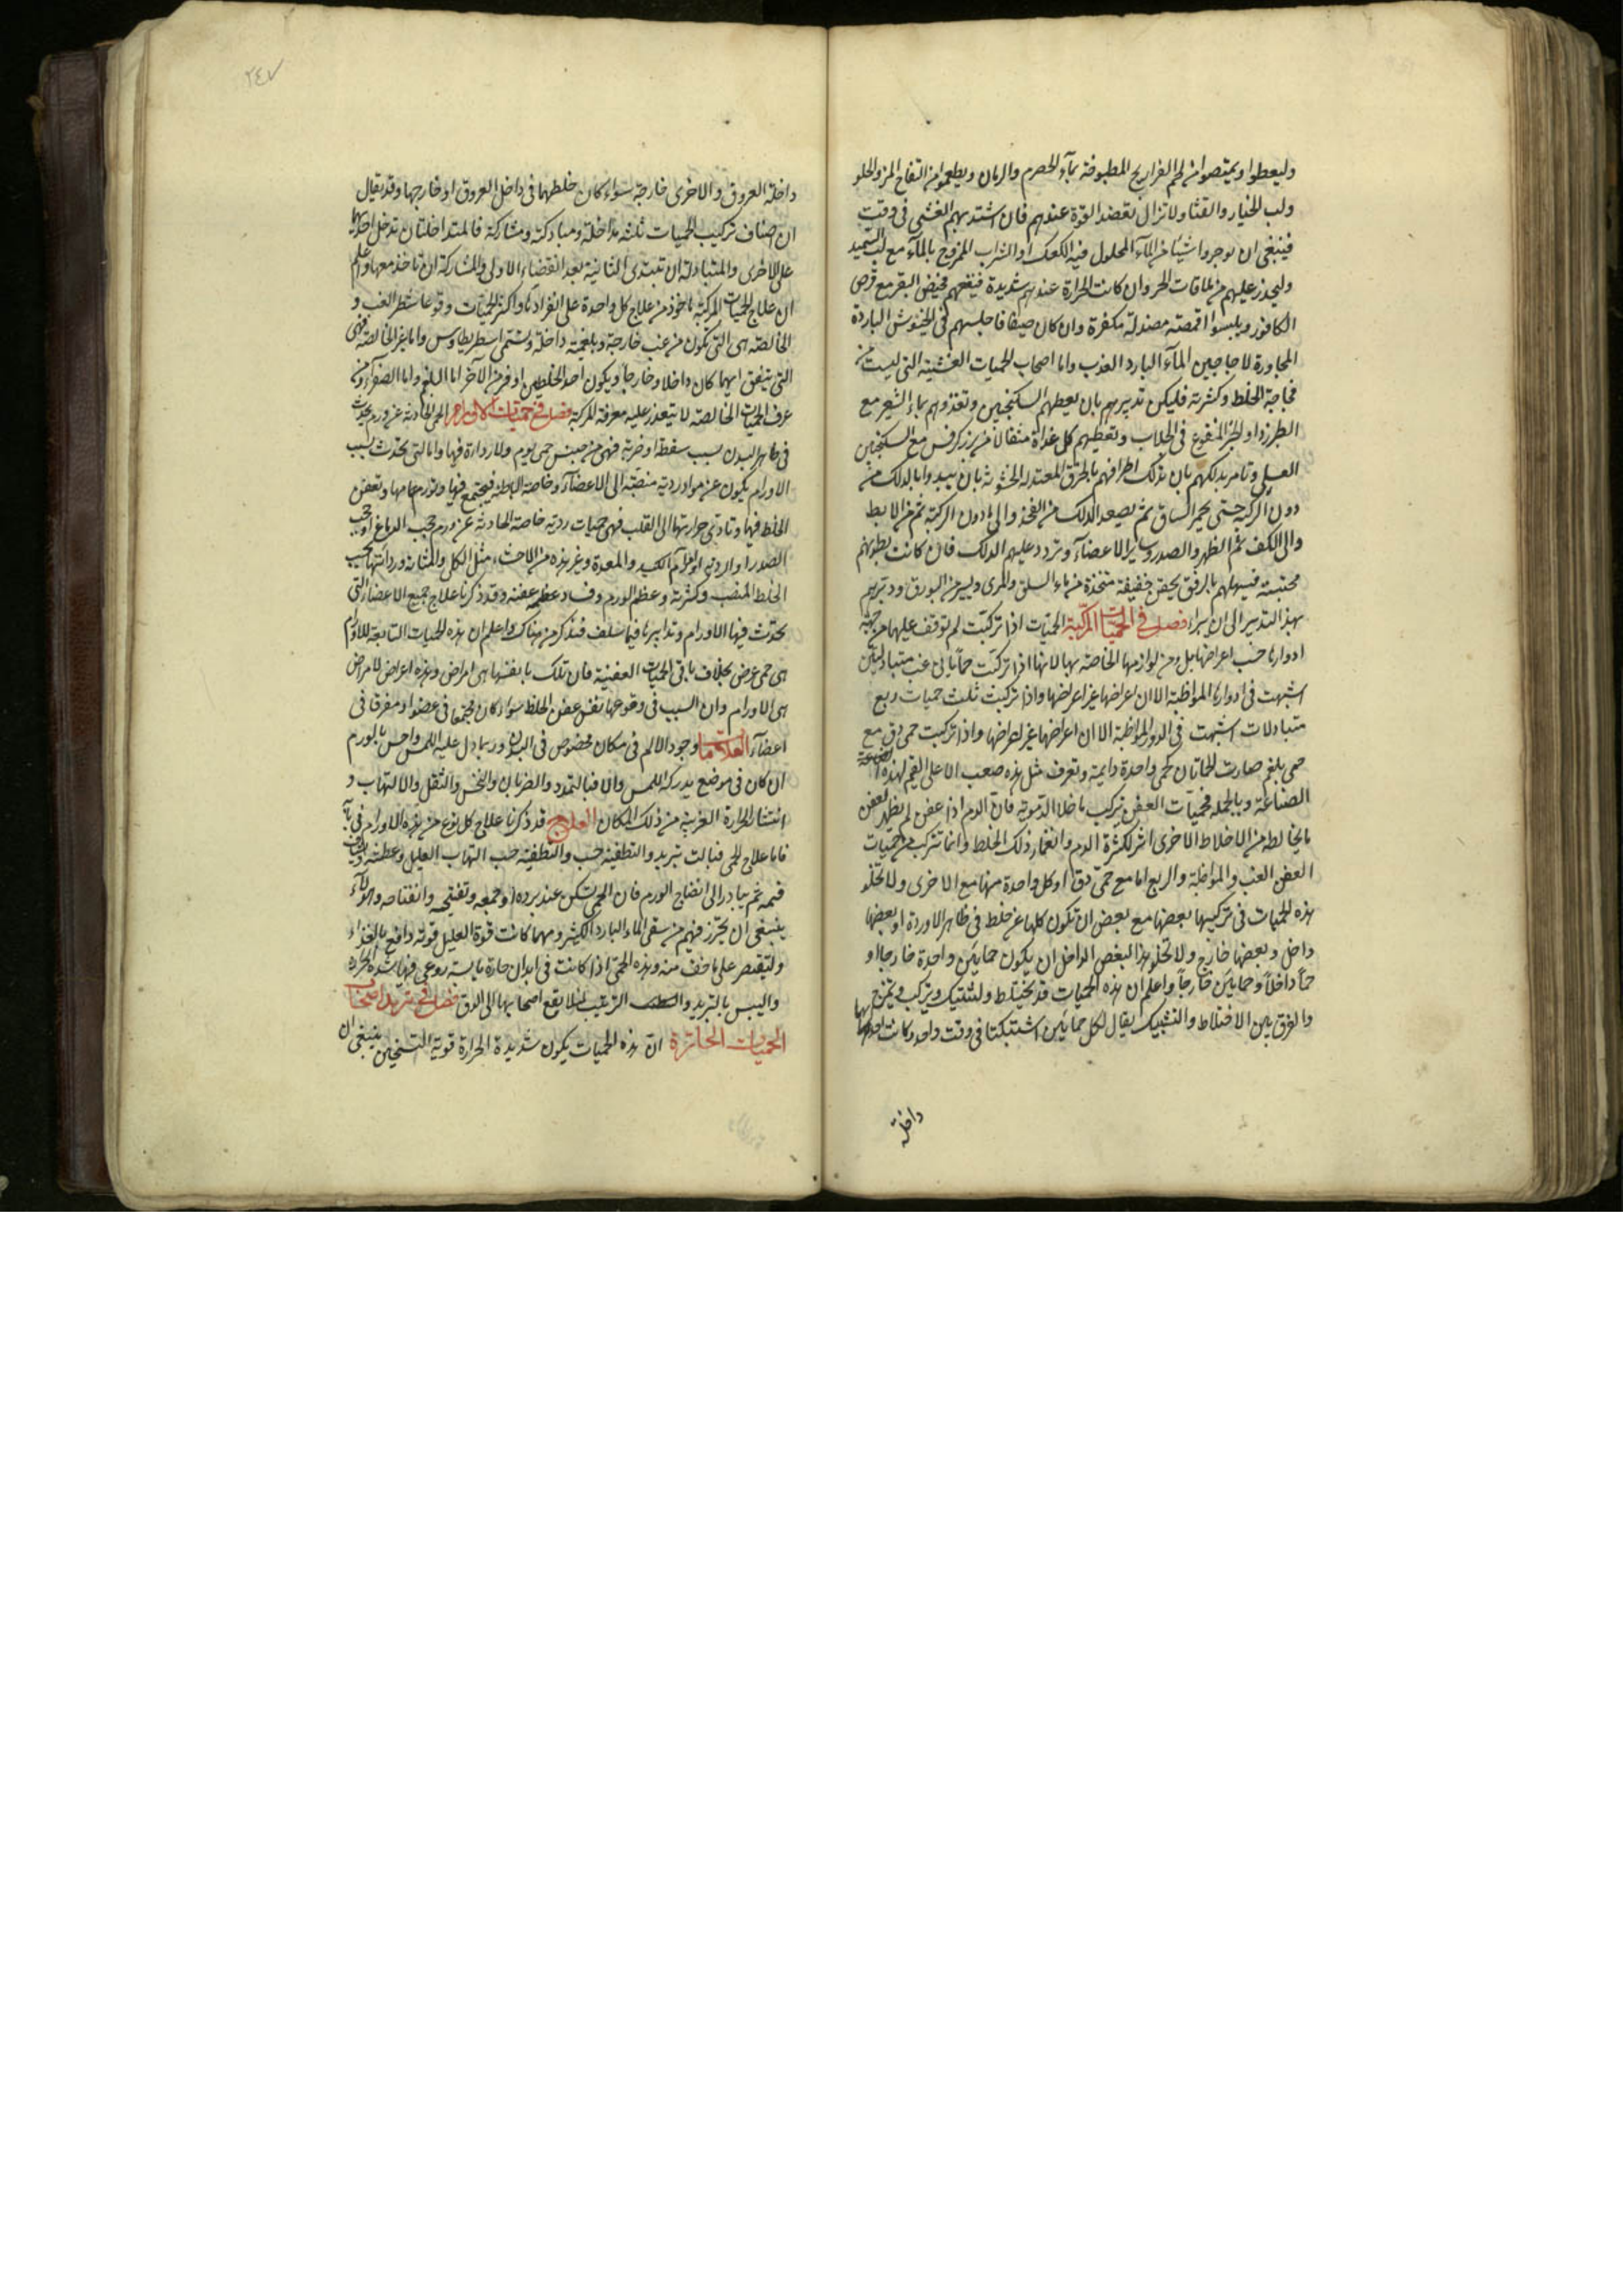 وليعطوا ويمتصوا من لحم الفراريج المطبوخة بمآء الحصرم والرمان ويطعموا من التفاح المز والحلو
ولب الخيار والقثا ولا تزال تعضد القوة عندهم فان اشتد بهم الغشى فى وقت
فينبغى ان يوجروا شيئا من المآء المحلول فيه الكعك او الشراب الممزوج بالمآء مع لب السميد
وليحذر عليهم من ملاقات الحر وان كانت الحرارة عندهم شديدة فينفعهم مخيض البقر مع قرص
الكافور ويلبسوا اقمصة مصندلة مكفرة وان كان صيفا فاجلسهم فى الخيوش الباردة
المجاورة لاجاجين المآء البارد العذب واما اصحاب الحميات الغشية التى ليست من
فجاجة الخلط وكثرته فليكن تدبيرهم بان يعطيهم السكنجبين وتغذوهم بماء الشعير مع
الطبرزد او الخبز المنقوع فى الجلاب وتعطيهم كل غداة مثقالا من بزر كرفس مع السكنجبين
العسلى وتامر بدلكهم بان تدلك اطرافهم بالخرق المعتدلة الخشونة بان يبدوا بالدلك من
دون الركبة حتى يحمر الساق ثم يصعد الدلك من الفخذ والى ما دون الركبة ثم من الابط
والى الكف ثم الظهر والصدر وساير الاعضآء وتردد عليهم الدلك فان كانت بطونهم
محتبسة فيسهلهم بالرفق بحقن خفيفة متخذة من ماء السلق والمرى ويسير من البورق ودبرهم
بهذا التدبير الى ان يبرا فصل فى الحميات المركبة الحميات اذا تركبت لم توقف عليها من جهة
ادوارها حسب اعراضها بل ومن لوازمها الخاصة بها لانها اذا تركبت حمايا لى غب متبادلتين
اشبهت فى ادوارها المواظبة الا ان اعراضها غير اعراضها واذا تركبت ثلث حميات ربع
متبادلات اشبهت فى الدور المواظبة الا ان اعراضها غير اعراضها واذا تركبت حمى دق مع
حمى بلغم صارت الحماتان كحمى واحدة دايمة وتعرف مثل هذه صعب الا على القيم لهذه
الصناعة وبالجملة فحميات العفن تركب ما خلا الدموية فان الدم اذا عفن لم يظهر لعفن
ما يخالطه من الاخلاط الاخرى اثر لكثرة الدم وانغمار ذلك الخلط وانما تتركب من حميات
العفن الغب والمواظبة والربع اما مع حمى دق او كل واحدة منها مع الاخرى ولا تخلو
هذه الحميات فى تركيبها بعضها مع بعض ان تكون كلها عن خلط فى ظاهر الاوردة او بعضها
داخل وبعضها خارج ولا تخلو هذا البعض الداخل ان يكون حمايتين واحدة خارجا او
حما داخلا وحمايتين خارجا واعلم ان هذه الحميات قد تختلط وتشتبك وتركب وتمتزج
والفرق بين الاختلاط والتشبيك يقال لكل حمايتين اشتبكتا فى وقت واحد وكانت احديهما
داخلة
٢٤٧
داخلة العروق والاخرى خارجة سواء كان خلطهما فى داخل العروق او خارجها وقد يقال
ان اصناف تركيب الحميات ثلثة مداخلة ومبادلة ومشاركة فالمتداخلتان تدخل احديهما
على الاخرى والمتبادلة ان تبتدى الثانية بعد انقضاء الاولى والمشاركة ان تاخذ معها واعلم
ان علاج الحميات المركبة ماخوذ من علاج كل واحدة على انفرادها واكثر الحميات وقوعا شطر الغب و
الخالصة هى التى تكون من غب خارجة وبلغمية داخلة وتسمى اسطريطاوس واما غير الخالصة فهى
التى يتفق ايهما كان داخلا وخارجا ويكون احد الخلطين اوفر من الآخر اما البلغم واما الصفرآء ومن
عرف الحميات الخالصة لا يتعذر عليه معرفة المركبة فصل فى حميات الاورام الحمى الحادثة عن ورم يحدث
فى ظاهر البدن بسبب سقطة او ضربة فهى من جنس حمى يوم ولا رداءة فيها واما التى تحدث بسبب
الاورام يكون عن مواد ردية منصبة الى الاعضآء وخاصة الباطنة فيجتمع فيها وتورم جامها وتعفن
الخلط فيها وتادى حرارتها الى القلب فهى حميات ردية خاصة الحادثة عن ورم حجب الدماغ او حجب
الصدر او الردية او اورام الكبد والمعدة وغير هذه من الاحشاء مثل الكلى والمثانة ورداتها بحسب
الخلط المنصب وكثرته وعظم الورم وفساد عظمه عفنه وقد ذكرنا علاج جميع الاعضاء التى
يحدث فيها الاورام وتدابيرها فيما سلف فتذكر من هناك واعلم ان هذه الحميات التابعة للاورام
هى حمى عرض بخلاف باقى الحميات العفنية فان تلك بانفسها هى امراض وهذه اعراض لامراض
هى الاورام وان السبب فى وقوعها نفس عفن الخلط سواء كان مجتمعا فى عضو او مفرقا فى
اعضآء العلامات وجود الالم فى مكان مخصوص فى البدن وربما دل عليه اللمس واحس بالورم
ان كان فى موضع يدركه اللمس والا فبالتمدد والضربان والنخس والثقل والالتهاب و
انتشار الحرارة الغريبة من ذلك المكان العلاج قد ذكرنا علاج كل نوع من هذه الاورام فى بابه
فاما علاج الحمى فبالتبريد والتطفية حسب والتطفية حسب التهاب العليل وعطشه
فمه ثم يبادر الى انضاج الورم فان الحمى تسكن عند برده او جمعه وتفتيحه وانفتاحه وهولآء
ينبغى ان يحترز فيهم من سقى الماء البارد الكثير ومهما كانت قوة العليل قوية دافع بالغذاء
ولتقتصر على ما خف منه وهذه الحمى اذا كانت فى ابدان حارة يابسة روعى فيها شدة الحرارة
واليبس بالتبريد والترطيب لئلا يقع اصحابها الى الدق فصل فى تبريد اصحاب
الحميات الحارة ان هذه الحميات يكون شديدة الحرارة قوية التسخين ينبغى ان